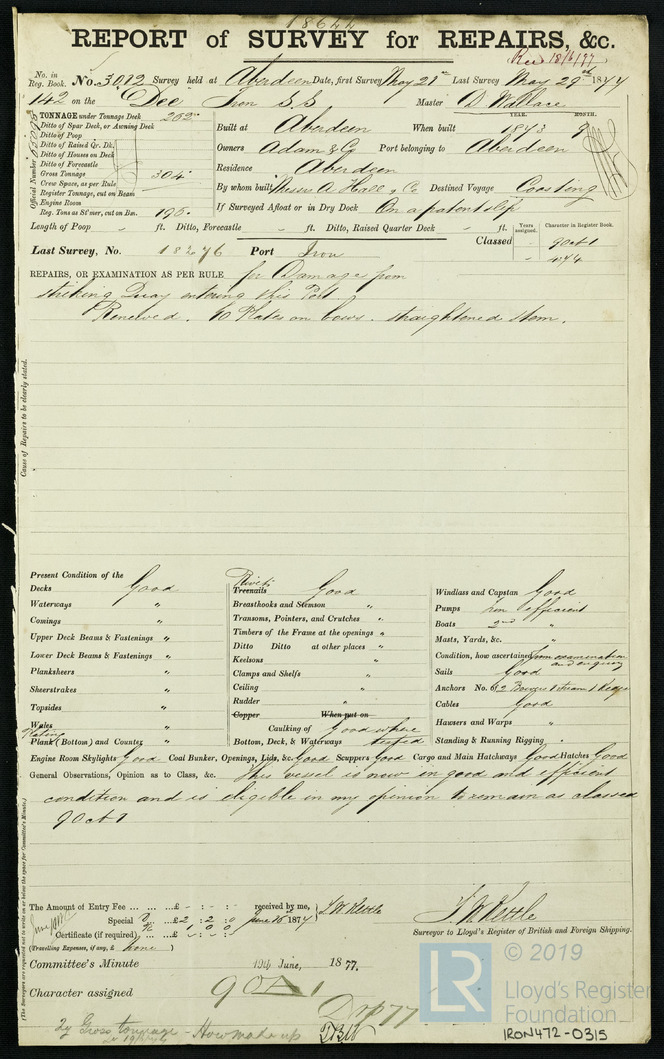 18622
REPORT of SURVEY for REPAIRS, &c.
Rec 18/6/77
No. in Reg. Book. No. 3012 Survey held at Aberdeen Date, first Survey May 21st Last Survey May 29th 1877
142 on the "Dee" Iron S.S Master D Wallace
TONNAGE under Tonnage Deck 262
Ditto of Spar Deck, or Awning Deck
Ditto of Poop
Ditto of Raised Qr. Dk.
Ditto of Houses on Deck
Ditto of Forecastle
Gross Tonnage 304
Crew Space, as per Rule
Register Tonnage, cut on Beam
Engine Room
Reg. Tons as St'mer, cut on Bm. 195
Official Number
Built at Aberdeen When built YEAR. 1873 MONTH. 9
Owners Adam & Co Port belonging to Aberdeen
Residence Aberdeen
By whom built Messrs A. Hall & Co Destined Voyage Coasting
If Surveyed Afloat or in Dry Dock On a patent slip
Length of Poop " ft. Ditto, Forecastle " ft. Ditto, Raised Quarter Deck " ft.
Years assigned. Character in Register Book.
Classed 90A1
Last Survey, No. 18276 Port Iron
REPAIRS, OR EXAMINATION AS PER RULE for Damages from
striking Quay entering this Port
Renewed. 10 Plates on bows. straightened Stem.
Cause of Repairs to be clearly stated.
Present Condition of the
Decks Good
Waterways "
Comings "
Upper Deck Beams & Fastenings "
Lower Deck Beams & Fastenings "
Planksheers "
Sheerstrakes "
Topsides "
Wales "
Plating
Plank (Bottom) and Counter "
Rivets
Treenails Good
Breasthooks and Stemson "
Transoms, Pointers, and Crutches "
Timbers of the Frame at the openings "
Ditto Ditto at other places "
Keelsons "
Clamps and Shelfs "
Ceiling "
Rudder "
Copper When put on
Caulking of Good where
Bottom, Deck, & Waterways tested
Windlass and Capstan Good
Pumps Iron efficient
Boats 2nd "
Masts, Yards, &c. "
Condition, how ascertained from examination
and enquiry
Sails Good
Anchors No. 2 Bowers 1 stream 1 Kedge
Cables Good
Hawsers and Warps "
Standing & Running Rigging "
Engine Room Skylights Good Coal Bunker, Openings, Lids, &c. Good Scuppers Good Cargo and Main Hatchways Good Hatches Good
General Observations, Opinion as to Class, &c. This vessel is now in good and efficient
condition and is eligible in my opinion to remain as classed
90A1
(The Surveyors are requested not to write on or below the space for Committee's Minute.)
The Amount of Entry Fee ... ... ...£ - : - : - received by me,
Special ... ...£2 : 2 : 0 June 15th 1877 J W Kettle
Certificate (if required) ... ..£ - : - : -
(Travelling Expenses, if any, £ none )
J W Kettle
Surveyor to Lloyd's Register of British and Foreign Shipping.
Committee's Minute 19th June, 1877.
Character assigned 90A1
Gross tonnage - How made up
LR
© 2019
Lloyd's Register
Foundation
IRON472-0315